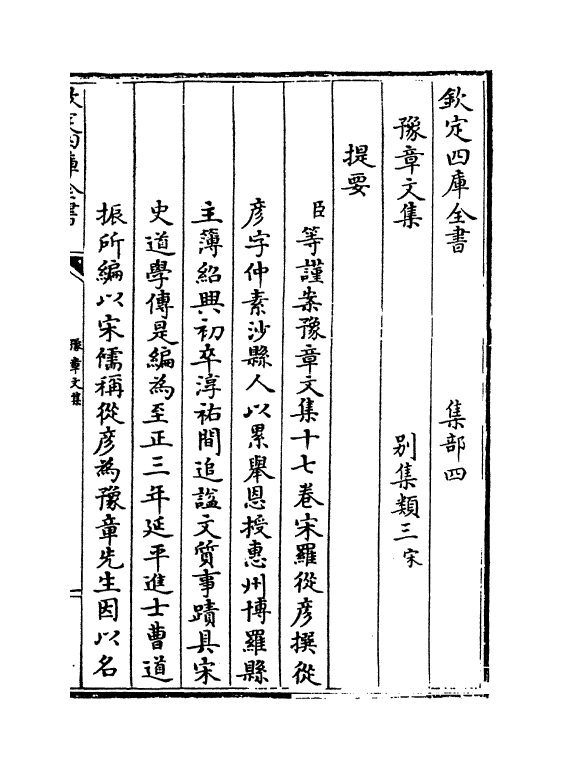 欽定四庫全書　集部四
豫章文集　别集類三宋
提要
臣等謹案豫章文集十七卷宋羅從彦撰從
彦字仲素沙縣人以累舉恩授惠州博羅縣
主簿紹興初卒淳祐間追諡文質事蹟具宋
史道學傳是編為至正三年延平進士曹道
振所編以宋儒稱從彦為豫章先生因以名
欽定四庫全書
豫章文集